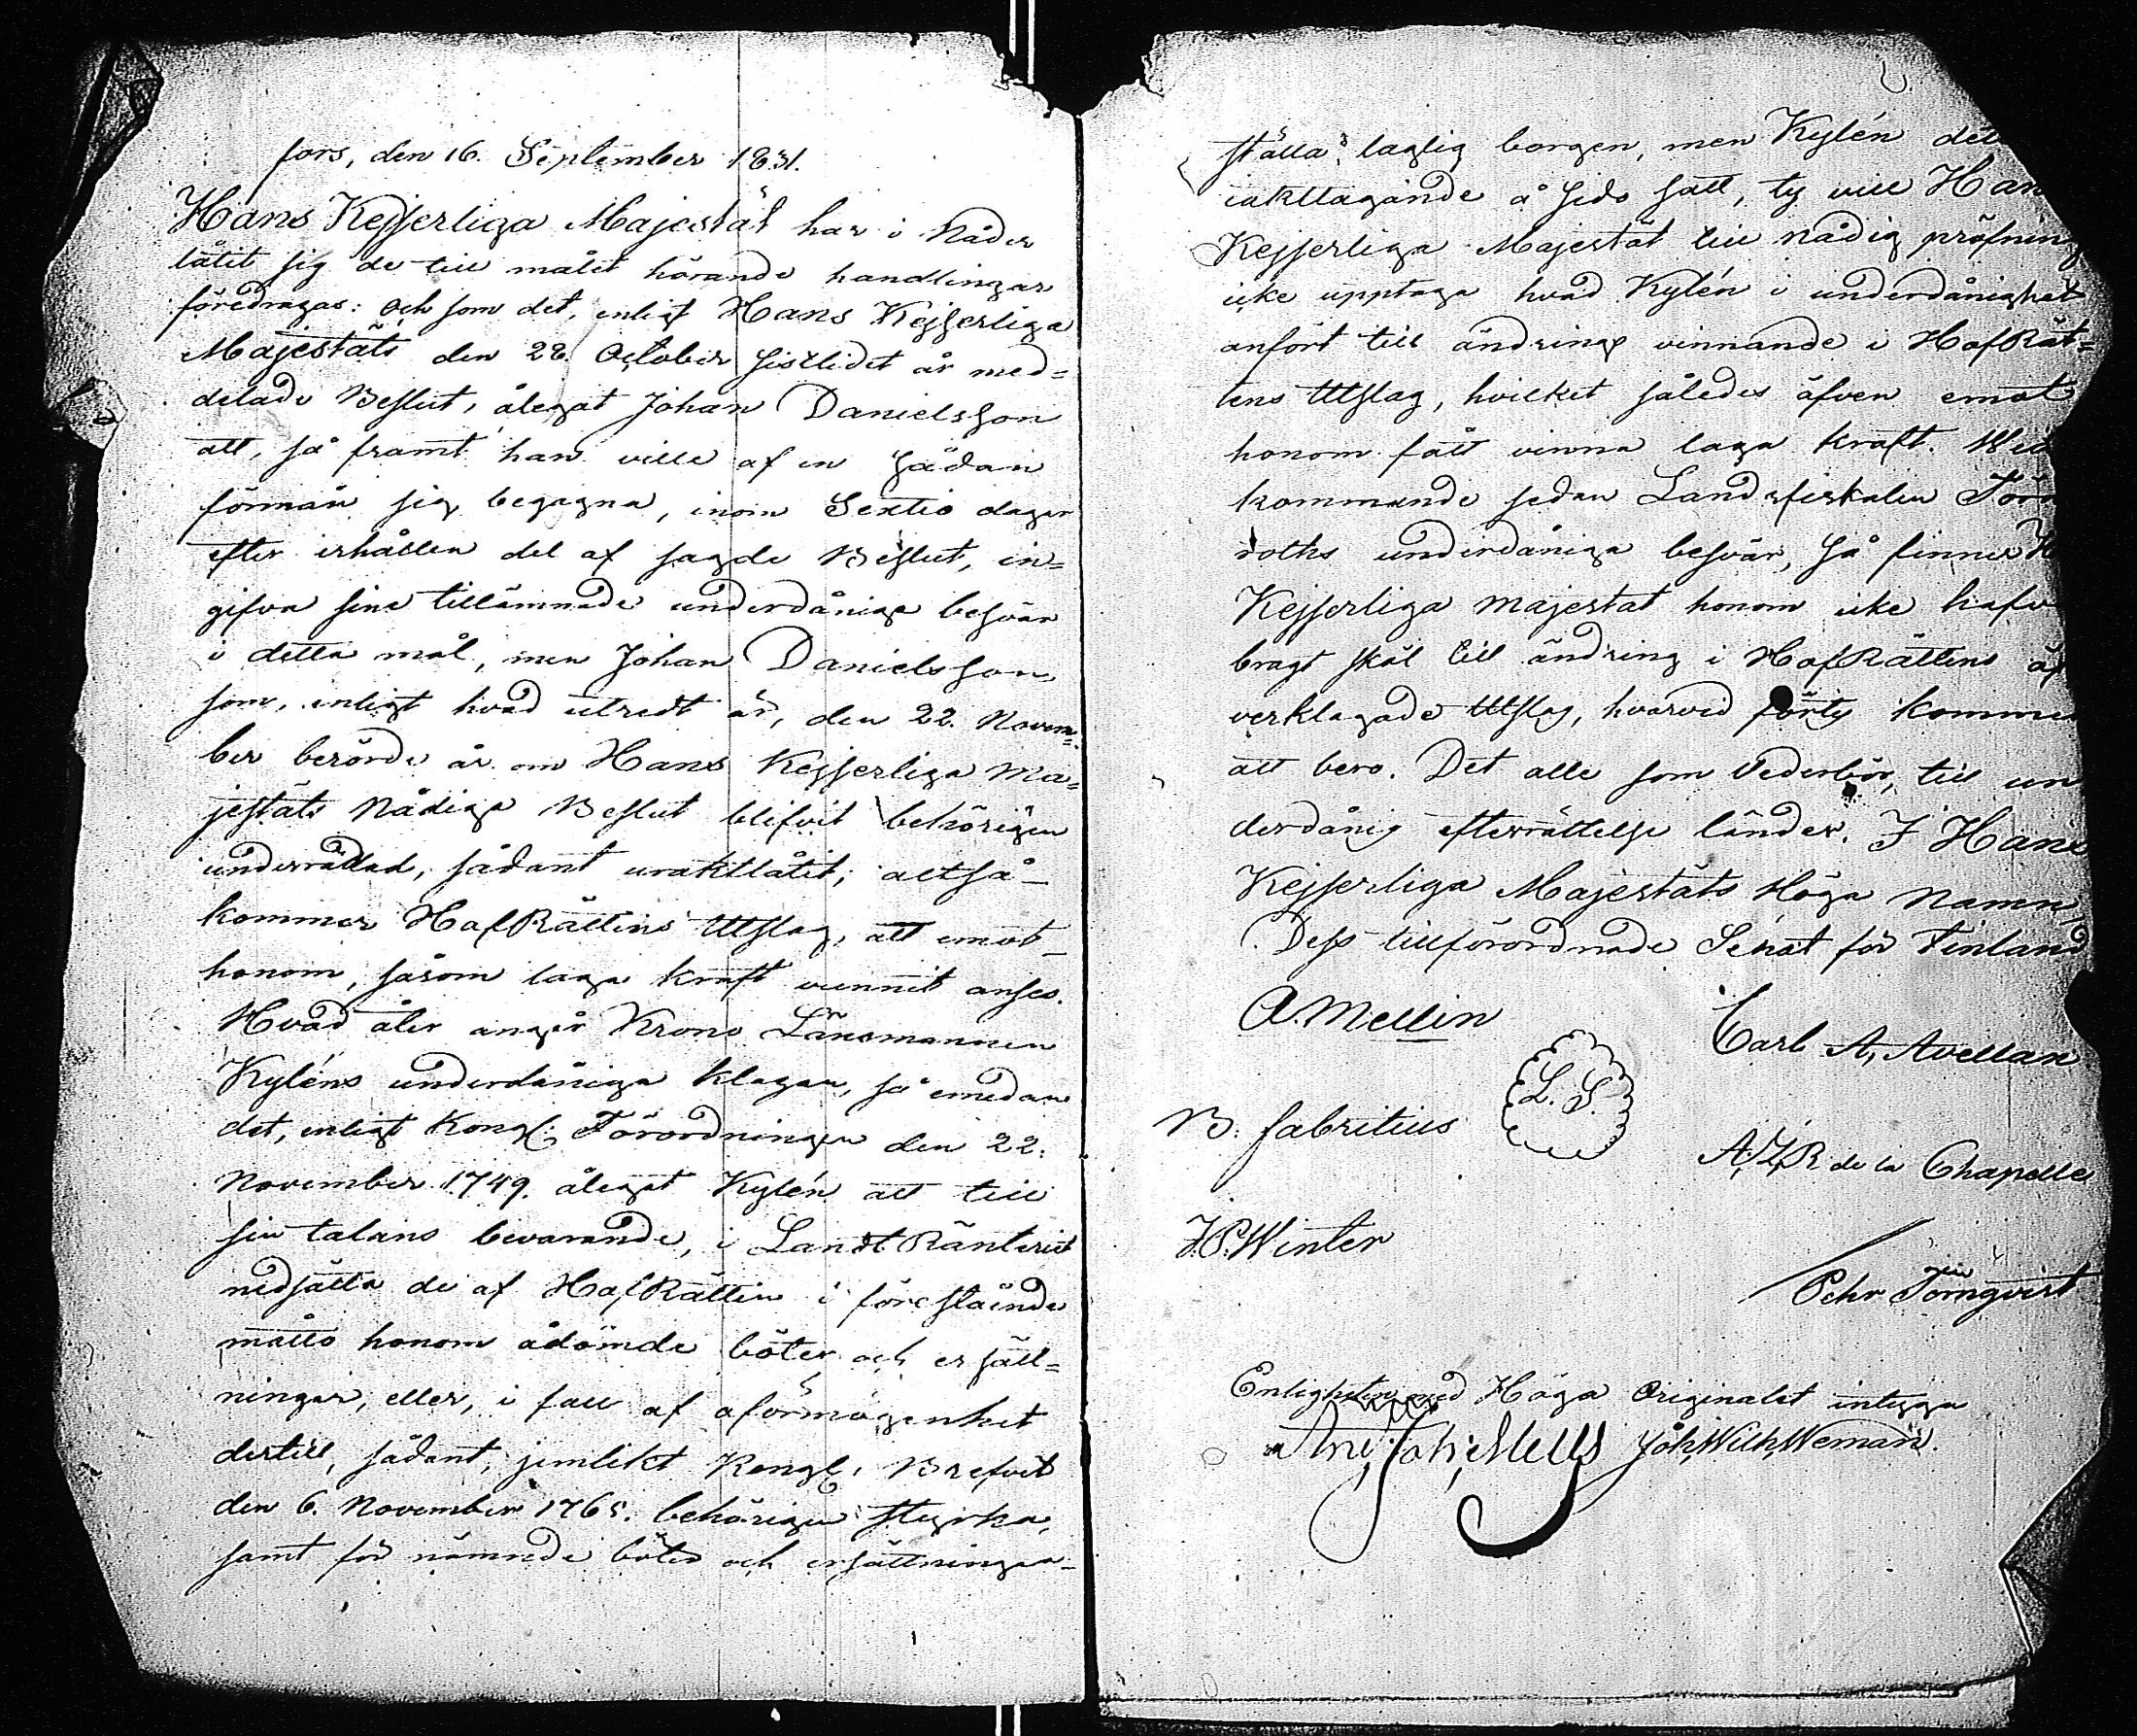 fors, den 16. September 1831.
Hans Kejserliga Majestät har i Nåder
låtit sig de till målet hörande handlingar
föredragas: och som det, enligt Hans Kejserliga
Majestäts den 28. October sistlidet år med=
delade Beslut, ålegat Johan Danielsson
att, så framt han ville af en sådan
förmån sig begagna, inom Sextio dagar
efter erhållen del af sagde Beslut, in=
gifva sine tillämnade underdåniga besvär
i detta mål, men Johan Danielsson
som, enligt hvad utredt är, den 22. Novem=
ber berörde år om Hans Kejserliga Ma=
jestäts Nådiga Beslut blifvit behörigen
underrättad, sådant uraktlåtit; altså
kommer HofRättens Utslag, att emot
honom, såsom laga kraft vunnit anses.
Hvad åter angår Krono Länsmannen
Kyléns underdåniga klagan, så emedan
det, enligt Kongl. Förordningen den 22.
November 1749. ålegat Kylén att till
sin talans bevarande, i LandtRänteriet
nedsätta de af HofRätten i förestående
måtto honom ådömde böter och ersätt=
ningar, eller, i fall af oförmögenhet
dertill, sådant, jemlikt Kongl. Brefvet
den 6. November 1765. behörigen styrka,
samt för nämnde böter och ersättningar
ställa laglig borgen, men Kylén det
iakttagande å sido satt, ty vill Han
Kejserliga Majestät till nådig pröfning
icke upptaga hvad Kylén i underdånighet
anfört till ändrings vinnande i HofRät=
tens Utslag, hvilket således äfven emot
honom fått vinna laga kraft. Wid
kommande sedan Landsfiskalen Törn
roths underdåniga besvär, så finner H
Kejserliga Majestät honom icke hafv
bragt skäl till ändring i HofRättens öf
verklagade Utslag, hvarvid förty komme
att bero. Det alle som Vederbör, till un
derdånig efterrättelse länder. I Hans
Kejserliga Majestäts Höga Namn,
Dess tillförordnade Senat för Finland
A. Mellin
Carl A, Avellan
L. S.
B. fabritius
A, Z, R de la Chapelle
J. P. Winter
Pehr Törnqvist
Enligheten med Höga Originalet intyga
Joh, Wilh, Weman.